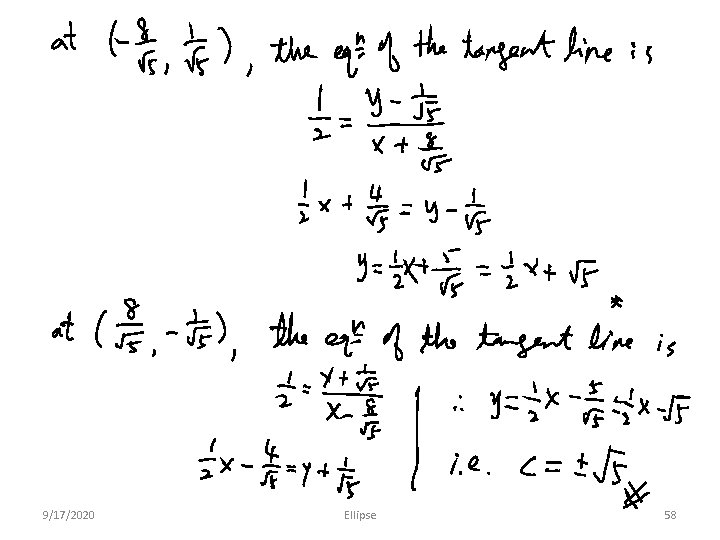 at (-8/√5, 1/√5), the eqⁿ of the tangent line is
1/2 = (y - 1/√5)/(x + 8/√5)
1/2 x + 4/√5 = y - 1/√5
y = 1/2 x + 5/√5 = 1/2 x + √5 *
at (8/√5, -1/√5), the eqⁿ of the tangent line is
1/2 = (y + 1/√5)/(x - 8/√5)
1/2 x - 4/√5 = y + 1/√5
∴ y = 1/2 x - 5/√5 = 1/2 x - √5
i.e. c = ±√5
9/17/2020 Ellipse 58